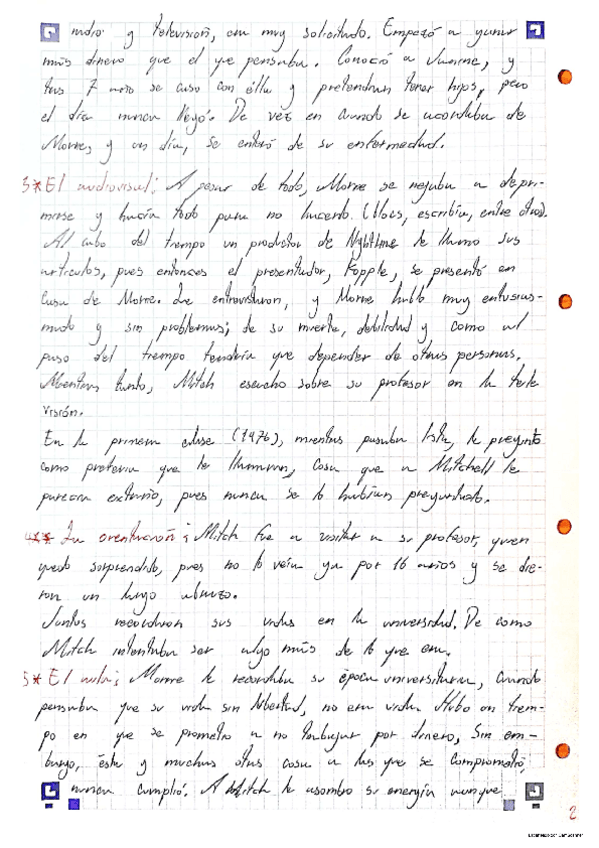 radio y televisión, era muy solicitado. Empezó a ganar
más dinero que el que pensaba. Conoció a Janine, y
tras 7 años se caso con ella y pretendrian tener hijos, pero
el día nunca llegó. De vez en cuando se acordaba de
Morrie, y un día, se enteró de su enfermedad.
3* El audiovisual: A pesar de todo, Morrie se negaba a depri-
mirse y hacía todo para no hacerlo. (Baes, escribía, entre otras).
Al cabo del tiempo un productor de Nightline le llamo sus
artículos, pues entonces el presentador, Kopple, se presentó en
casa de Morrie. Le entrevistaron, y Morrie habló muy entusias-
mado y sin problemas; de su muerte, debilidad y como al
paso del tiempo tendría que depender de otras personas.
Mientras tanto, Mitch escucho sobre su profesor en la tele
visión.
En la primera clase (1976), mientras pasaba lista, le pregunto
como preferia que le llamaran, cosa que a Mitchell le
parecia extraño, pues nunca se lo habian preguntado.
4** La orentación: Mitch fue a visitar a su profesor, quien
quedo sorprendido, pues no lo veía ya por 16 años y se die-
ron un largo abrazo.
Juntos recordaron sus vidas en la universidad. De como
Mitch intentaba ser algo más de lo que era.
5* El aula: Morrie le recordaba su época universitaria, cuando
pensaba que su vida sin libertad, no era vida. Hubo un tiem-
po en que se prometio a no trabajar por dinero, sin em-
bargo, ésta y muchas otras cosas a las que se comprometió,
nunca cumplió. A Mitch le asombro su energía aunque
2